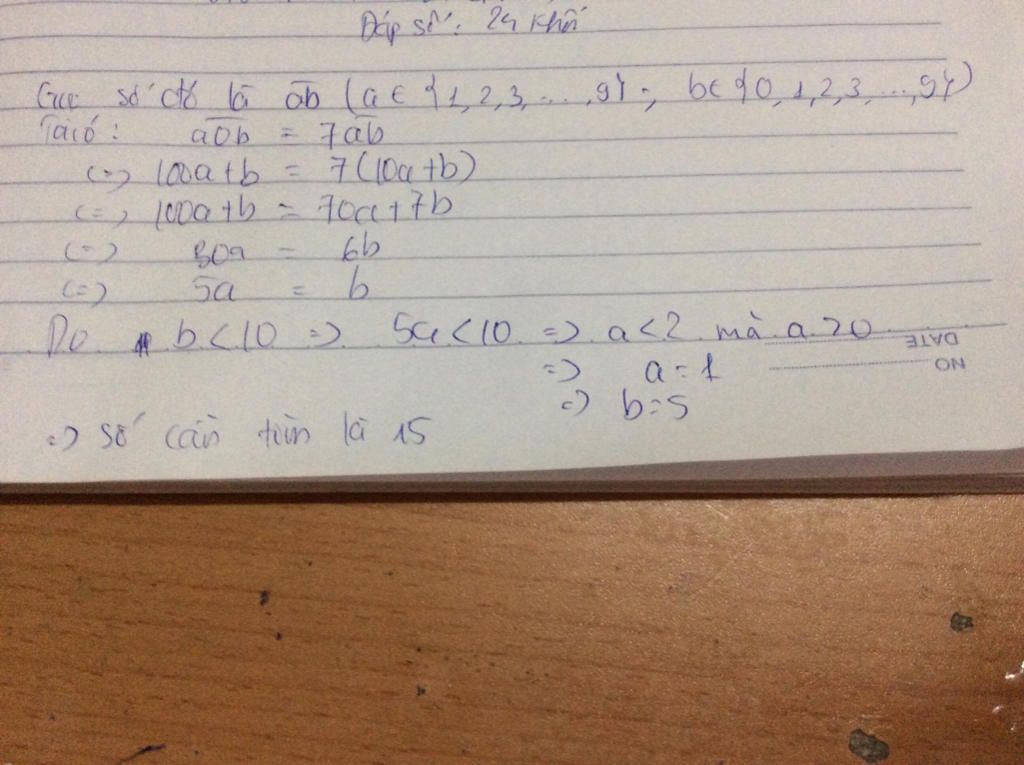 Đáp số: 24 khối
Gọi số đó là ab̅ (a ∈ {1,2,3,...,9}; b ∈ {0,1,2,3,...,9})
Ta có: a0b̅ = 7ab̅
(=) 100a+b = 7(10a+b)
(=) 100a+b = 70a+7b
(=) 30a = 6b
(=) 5a = b
Do b < 10 => 5a < 10 => a < 2 mà a > 0
=> a = 1
=> b = 5
=> số cần tìm là 15
DATE
NO